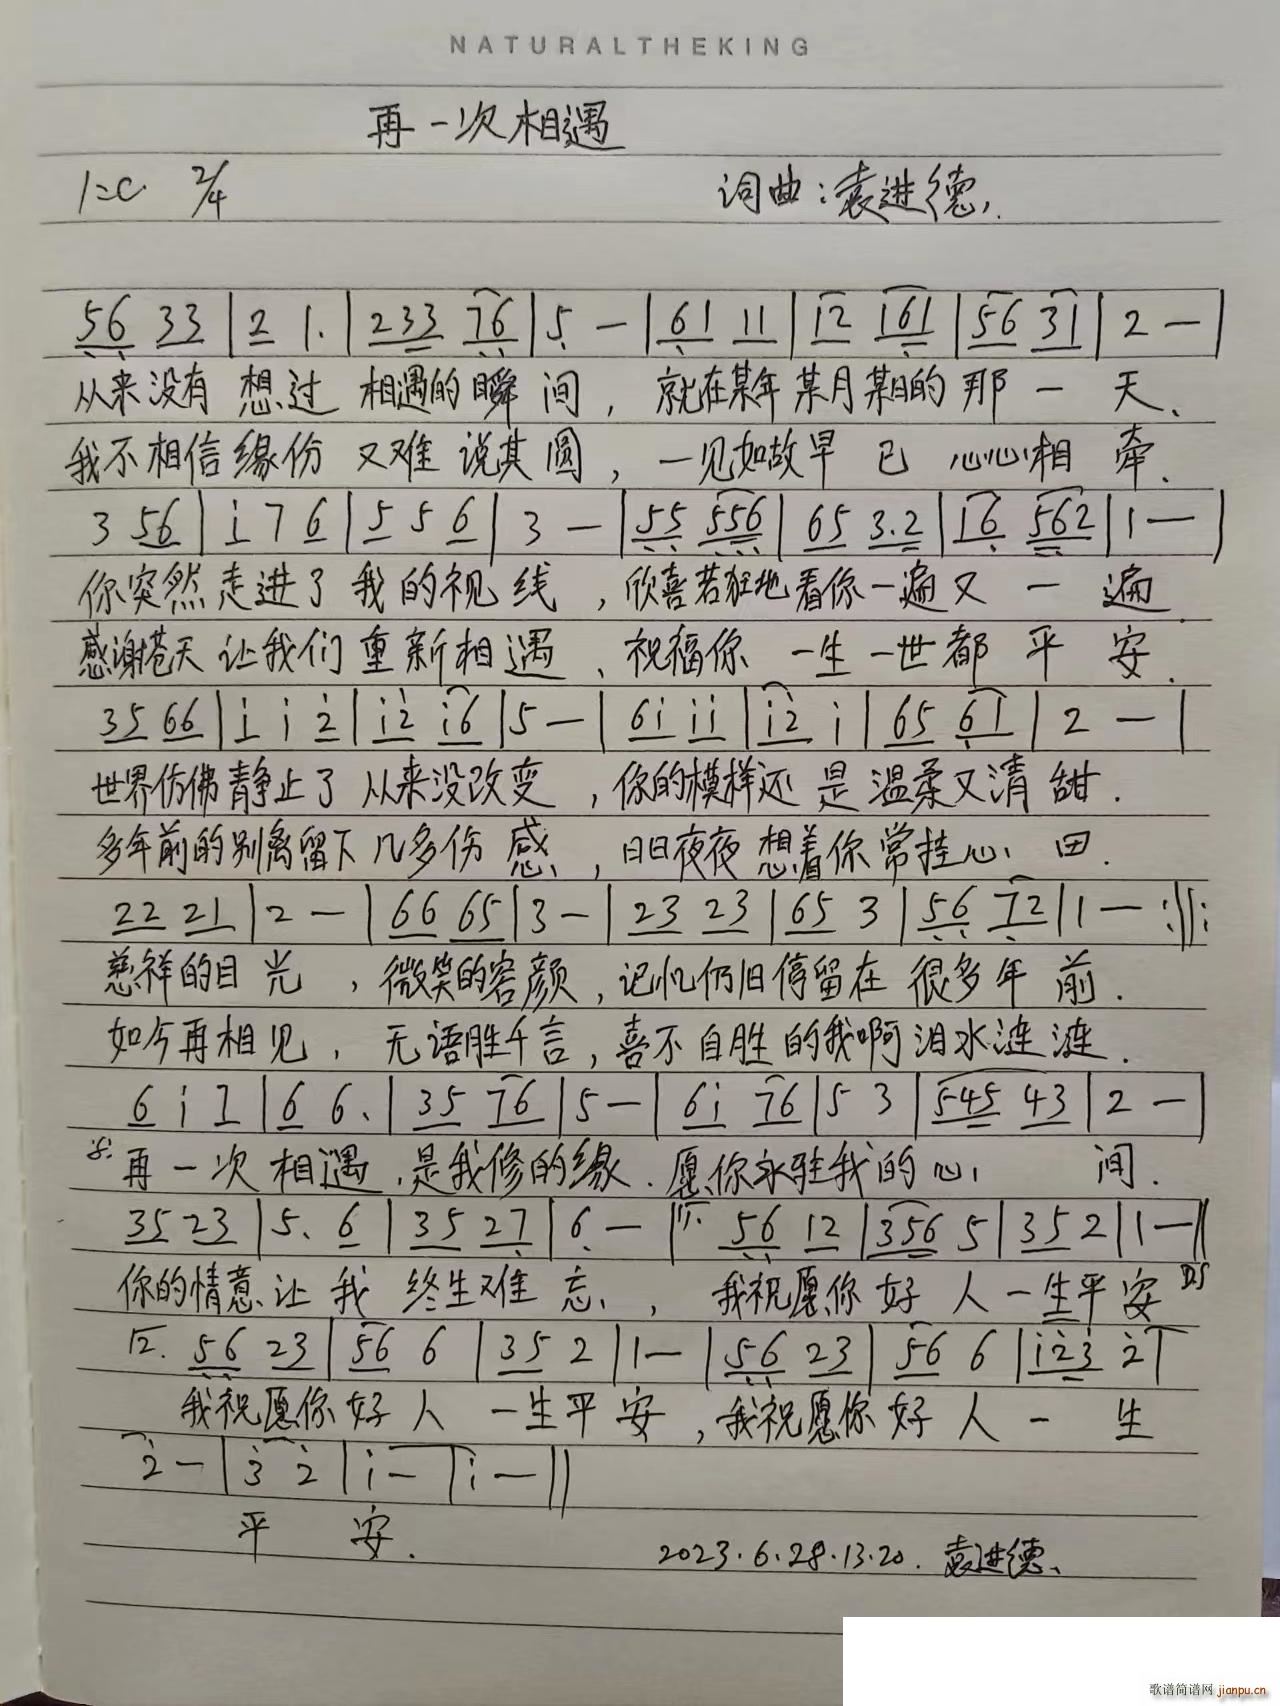 NATURALTHEKING
再一次相遇
1=C 2/4 词曲:袁进德.
56 33|2 1.|233 76|5 —|61 11|12 161|56 31|2 —|
从来没有 想过 相遇的瞬间,就在某年某月某日的那一天.
我不相信缘份 又难说其圆,一见如故早已 心心相牵.
3 56|i 7 6|5 5 6|3 —|55 556|65 3.2|16 562|1 —|
你突然走进了我的视线,欣喜若狂地看你一遍又一遍.
感谢苍天让我们重新相遇,祝福你一生一世都平安.
35 66|i i 2|i2 i6|5 —|6i ii|i2 i|65 61|2 —|
世界仿佛静止了 从来没改变,你的模样还是温柔又清甜.
多年前的别离留下几多伤感,日日夜夜想着你常挂心田.
22 21|2 —|66 65|3 —|23 23|65 3|56 72|1 — :||:
慈祥的目光,微笑的容颜,记忆仍旧停留在很多年前.
如今再相见,无语胜千言,喜不自胜的我啊泪水涟涟.
6 i 7|6 6.|35 76|5 —|6i 76|5 3|545 43|2 —|
再一次相遇,是我修的缘.愿你永驻我的心间.
35 23|5. 6|35 27|6 —|1. 56 12|356 5|35 2|1 —||
你的情意让我终生难忘,我祝愿你好人一生平安 DS
2. 56 23|56 6|35 2|1 —|56 23|56 6|i23 2|
我祝愿你好人一生平安,我祝愿你好人一生
2 —|3 2|i —|i —||
平安.
2023.6.28.13.20. 袁进德.
歌谱简谱网 jianpu.cn